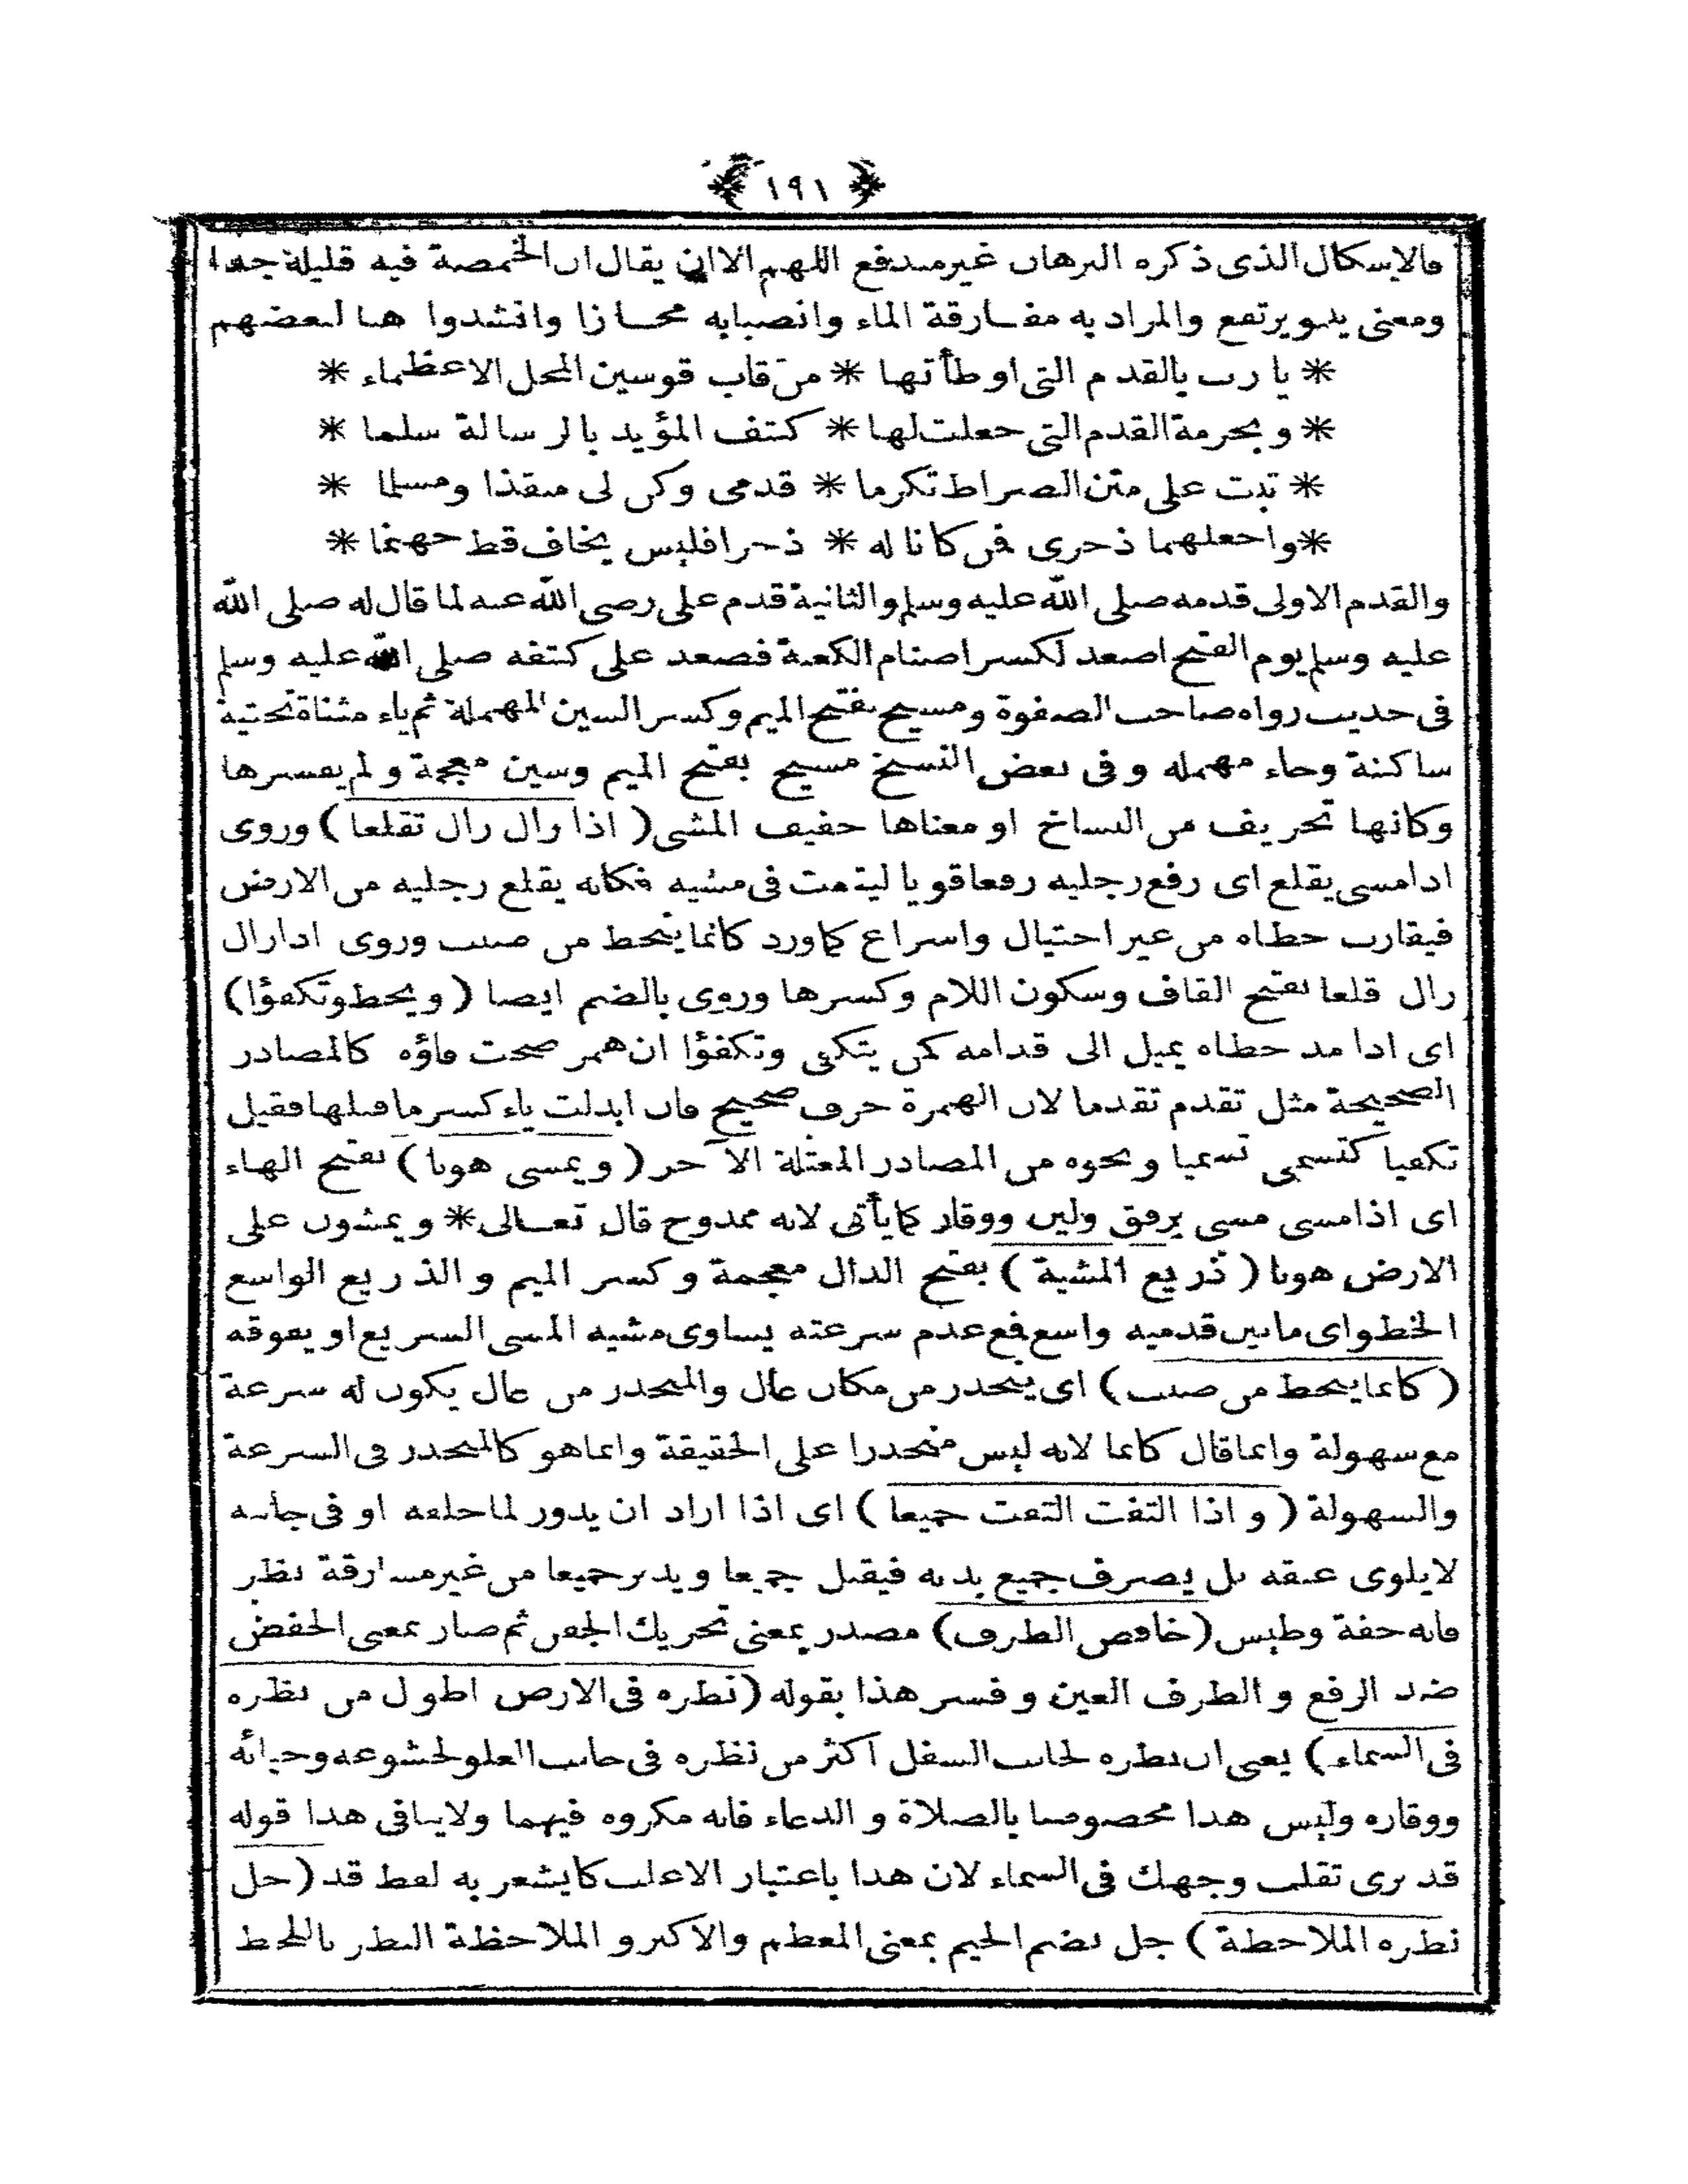 ﴿ ١٩١ ﴾
فالاشكال الذى ذكره البرهان غير مندفع اللهم الا ان يقال ان الخمصة فيه قليلة جدا
ومعنى ينبو يرتفع والمراد به مفارقة الماء وانصبابه مجازا وانشدوا هنا لبعضهم
* يا رب بالقدم التى اوطأتها * من قاب قوسين المحل الاعظماء *
* و بحرمة القدم التى جعلت لها * كتف المؤيد بالرسالة سلما *
* ثبت على متن الصراط تكرما * قدمى وكن لى منقذا ومسلما *
* واجعلهما ذخرى فمن كانا له * ذخرا فليس يخاف قط جهنما *
والقدم الاولى قدمه صلى الله عليه وسلم والثانية قدم على رضى الله عنه لما قال له صلى الله
عليه وسلم يوم الفتح اصعد لكسر اصنام الكعبة فصعد على كتفه صلى الله عليه وسلم
فى حديث رواه صاحب الصفوة ومسيح بفتح الميم وكسر السين المهملة ثم ياء مثناة تحتية
ساكنة وحاء مهمله و فى بعض النسخ مسيح بفتح الميم وسين معجمة و لم يفسرها
وكانها تحريف من النساخ او معناها خفيف المشى ( اذا زال زال تقلعا ) وروى
اذا مشى يقلع اى رفع رجليه رفعا قويا ليتثبت فى مشيه فكانه يقلع رجليه من الارض
فيقارب خطاه من غير احتيال واسراع كما ورد كانما ينحط من صبب وروى اذا زال
زال قلعا بفتح القاف وسكون اللام وكسرها وروى بالضم ايضا ( و يخط وتكفؤا )
اى اذا مد خطاه يميل الى قدامه كمن يتكى وتكفؤا ان همز صحت فاؤه كالمصادر
الصحيحة مثل تقدم تقدما لان الهمزة حرف صحيح فان ابدلت ياء كسر ما قبلها فقيل
تكفيا كتسمى تسميا و نحوه من المصادر المعتلة الآخر ( و يمشى هونا ) بفتح الهاء
اى اذا مشى مشى برفق ولين ووقار كما يأتى لانه ممدوح قال تعالى * و يمشون على
الارض هونا ( ذريع المشية ) بفتح الذال معجمة و كسر الميم و الذريع الواسع
الخطو اى ما بين قدميه واسع فمع عدم سرعته يساوى مشيه المشى السريع او يفوقه
( كانما ينحط من صبب ) اى ينحدر من مكان عال والمنحدر من عال يكون له سرعة
مع سهولة وانما قال كانما لانه ليس منحدرا على الحقيقة وانما هو كالمنحدر فى السرعة
والسهولة ( و اذا التفت التفت جميعا ) اى اذا اراد ان يدور لما خلفه او فى جانبه
لا يلوى عنقه بل يصرف جميع بدنه فيقبل جميعا و يدبر جميعا من غير مسارقة نظر
فانه خفة وطيش ( خافض الطرف ) مصدر بمعنى تحريك الجفن ثم صار بمعنى الخفض
ضد الرفع و الطرف العين و فسر هذا بقوله ( نظره فى الارض اطول من نظره
فى السماء ) يعنى ان نظره لجانب السفل اكثر من نظره فى جانب العلو لخشوعه وحيائه
ووقاره وليس هذا مخصوصا بالصلاة و الدعاء فانه مكروه فيهما ولا ينافى هذا قوله
قد نرى تقلب وجهك فى السماء لان هذا باعتبار الاغلب كما يشعر به لفظ قد ( جل
نظره الملاحظة ) جل بضم الجيم بمعنى المعظم والاكبر و الملاحظة النظر باللحظ